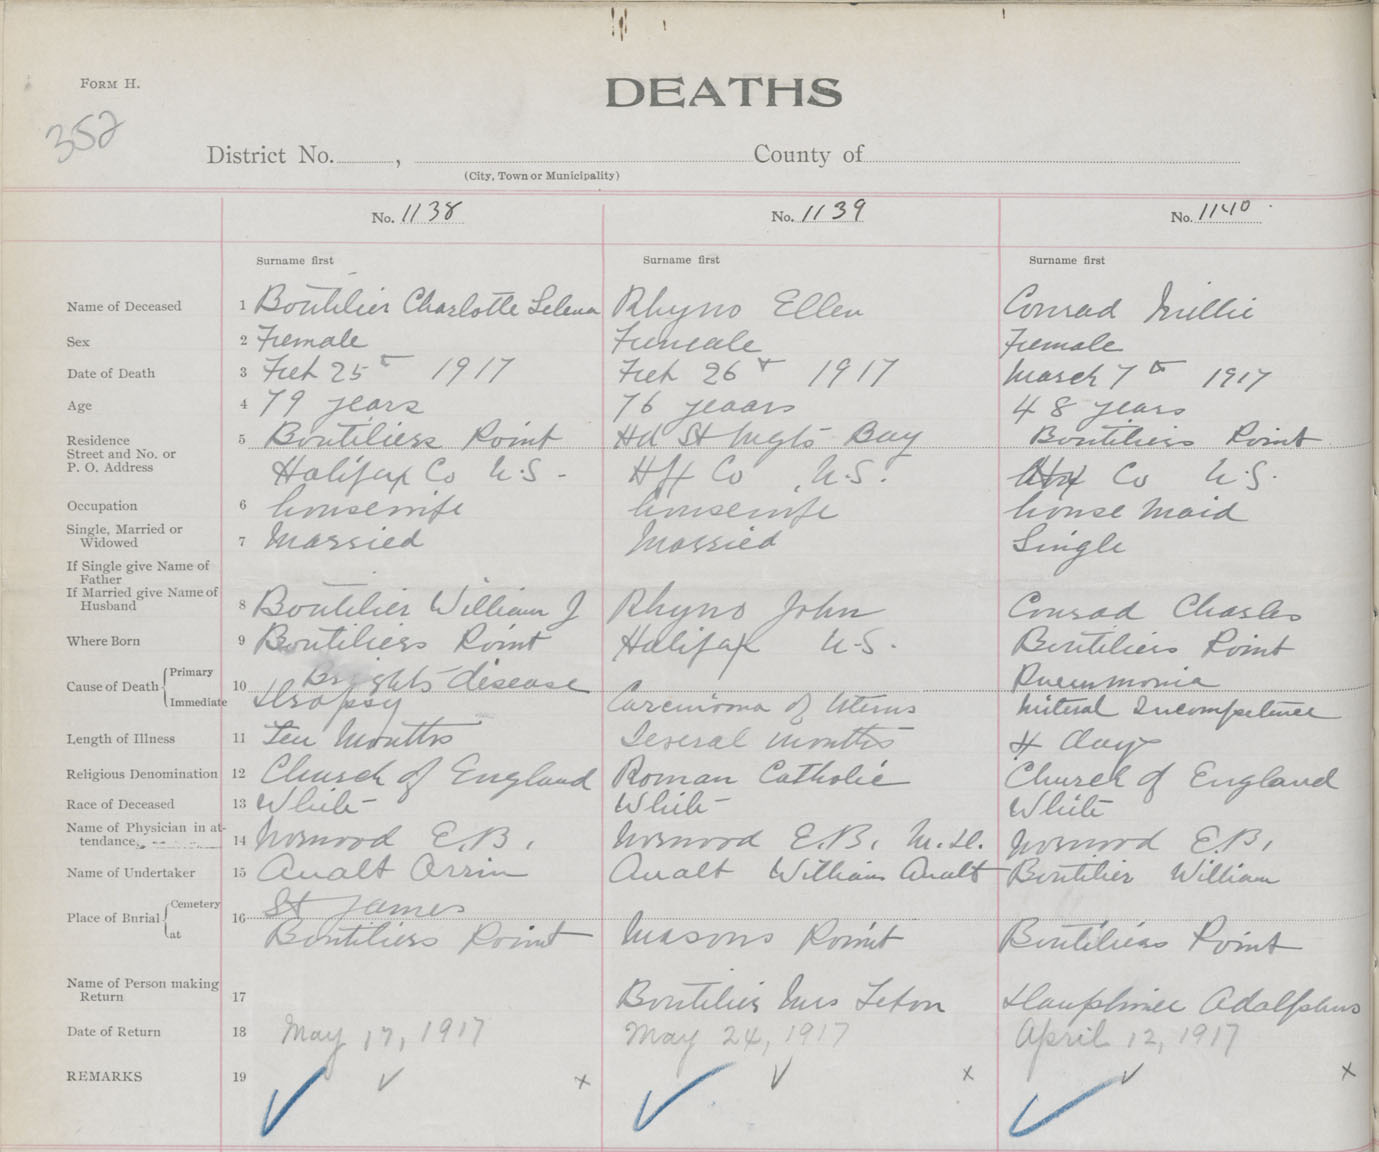 FORM H.
DEATHS
352
District No. , County of
(City, Town or Municipality)
No. 1138 No. 1139 No. 1140
Surname first Surname first Surname first
Name of Deceased 1 Boutilier Charlotte Selena Rhyno Ellen Conrad Millie
Sex 2 Female Female Female
Date of Death 3 Feb 25th 1917 Feb 26th 1917 March 7th 1917
Age 4 79 years 76 yeaars 48 years
Residence 5 Boutiliers Point Hd St Mgts Bay Boutiliers Point
Street and No. or
P. O. Address Halifax Co N.S. Hfx Co N.S. Hfx Co N.S.
Occupation 6 housewife housewife house maid
Single, Married or
Widowed 7 Married Married Single
If Single give Name of
Father
If Married give Name of
Husband 8 Boutilier William J Rhyno John Conrad Charles
Where Born 9 Boutiliers Point Halifax N.S. Boutiliers Point
Cause of Death Primary 10 Brights disease Pneumonia
Immediate Dropsy Carcinoma of Uterus Mitral Incompetence
Length of Illness 11 Ten Months Several months 4 days
Religious Denomination 12 Church of England Roman Catholic Church of England
Race of Deceased 13 White White White
Name of Physician in at-
tendance. 14 Norwood E.B. Norwood E.B. M.D. Norwood E.B.
Name of Undertaker 15 Aualt Orrin Aualt William Aualt Boutilier William
Place of Burial Cemetery 16 St James
at Boutiliers Point Masons Point Boutiliers Point
Name of Person making
Return 17 Boutilier Mrs Dauphinee Adolphus
Date of Return 18 May 17, 1917 May 24, 1917 April 12, 1917
REMARKS 19